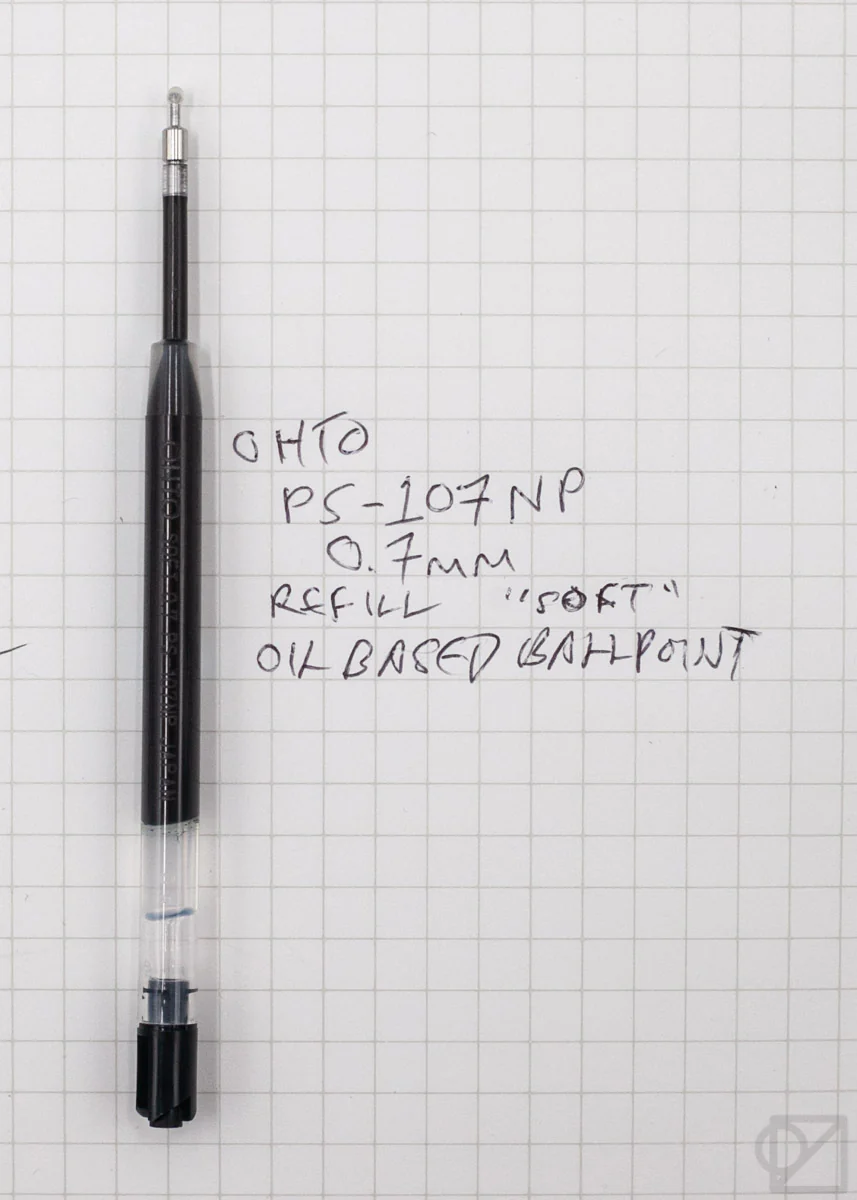 OHTO
PS-107NP
0.7mm
REFILL "SOFT"
OIL BASED BALLPOINT
OHTO SOFT 0.7 PS-107NP JAPAN